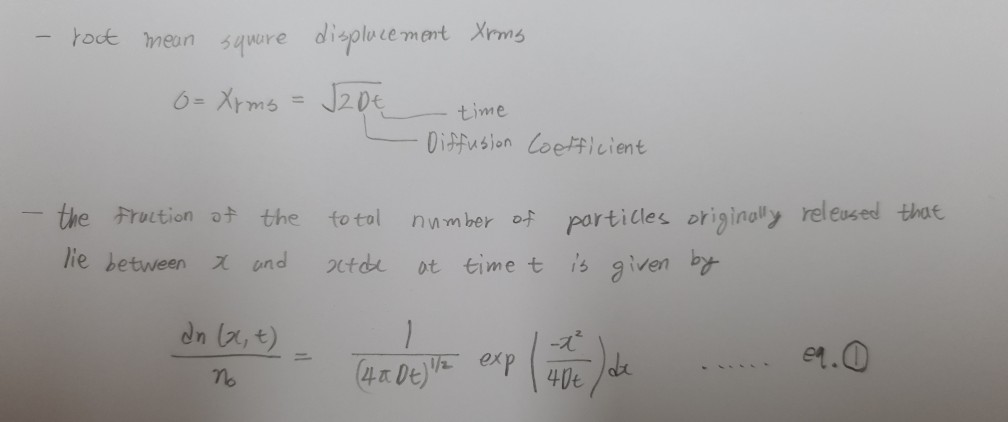 - root mean square displacement Xrms
σ = Xrms = √2Dt
time
Diffusion Coefficient
- the fraction of the total number of particles originally released that
lie between x and x+dx at time t is given by
dn(x,t)/n₀ = 1/(4πDt)^1/2 exp(-x²/4Dt)dx ...... eq.①